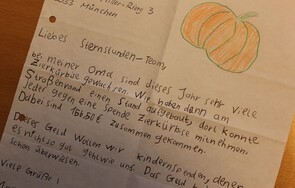 Ring 3
München
Liebes Sternstunden-Team,
bei meiner Oma sind dieses Jahr sehr viele
Zierkürbise gewachsen. Wir haben dann am
Straßenrand einen Stand aufgebaut, dort konnte
jeder gegen eine Spende Zierkürbise mitnehmen.
Dabei sind zusammen gekommen.
Dieses Geld wollen wir kindern spenden, denen
es nicht so gut geht wie uns. Das Geld
schon überwiesen.
Viele Grüße